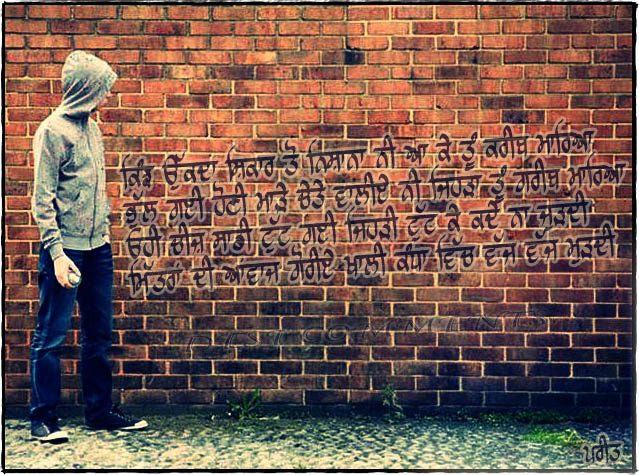 ਕਿੰਝ ਉੱਕਦਾ ਸ਼ਿਕਾਰ ਤੋਂ ਨਿਸ਼ਾਨਾ ਨੀ ਆ ਕੇ ਤੂੰ ਕਰੀਬ ਮਾਰਿਆ
ਭੁੱਲ ਗਈ ਹੋਣੀ ਮਾੜੇ ਚੇਤੇ ਵਾਲੀਏ ਨੀ ਜਿਹੜਾ ਤੂੰ ਗਰੀਬ ਮਾਰਿਆ
ਓਹੀ ਚੀਜ਼ ਸਾਡੀ ਟੁੱਟ ਗਈ ਜਿਹੜੀ ਟੁੱਟ ਕੇ ਕਦੇ ਨਾ ਜੁੜਦੀ
ਮਿੱਤਰਾਂ ਦੀ ਆਵਾਜ਼ ਗੋਰੀਏ ਖਾਲੀ ਕੰਧਾਂ ਵਿੱਚ ਵੱਜ ਵੱਜ ਮੁੜਦੀ
DESICOMMENTS
ਪ੍ਰੀਤ